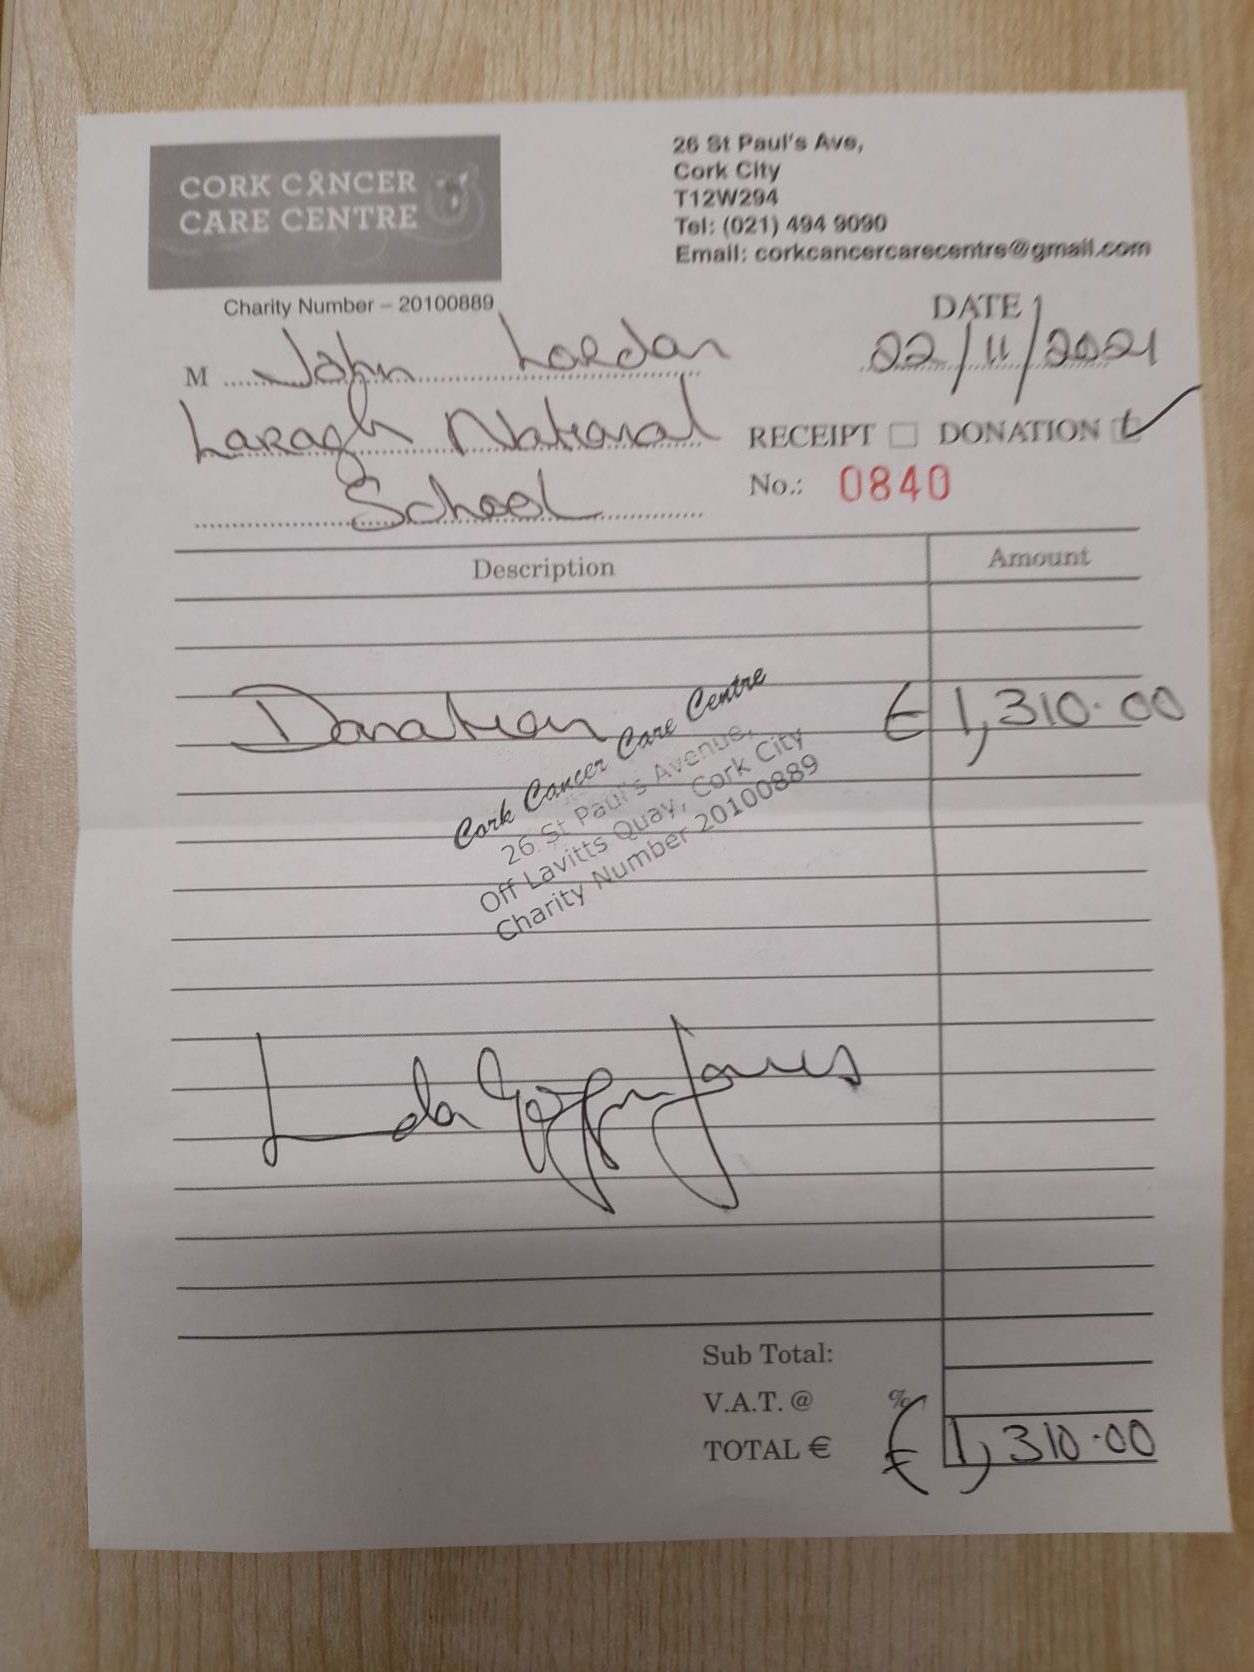 CORK CANCER
CARE CENTRE
Charity Number – 20100889
26 St Paul's Ave,
Cork City
T12W294
Tel: (021) 494 9090
Email: corkcancercarecentre@gmail.com
DATE
22/11/2021
M John Lordan
Laragh National
School
RECEIPT DONATION
No.: 0840
Description Amount
Donation € 1,310.00
Cork Cancer Care Centre
26 St Paul's Avenue,
Off Lavitts Quay, Cork City
Charity Number 20100889
Linda
Sub Total:
V.A.T. @ %
TOTAL € € 1,310.00